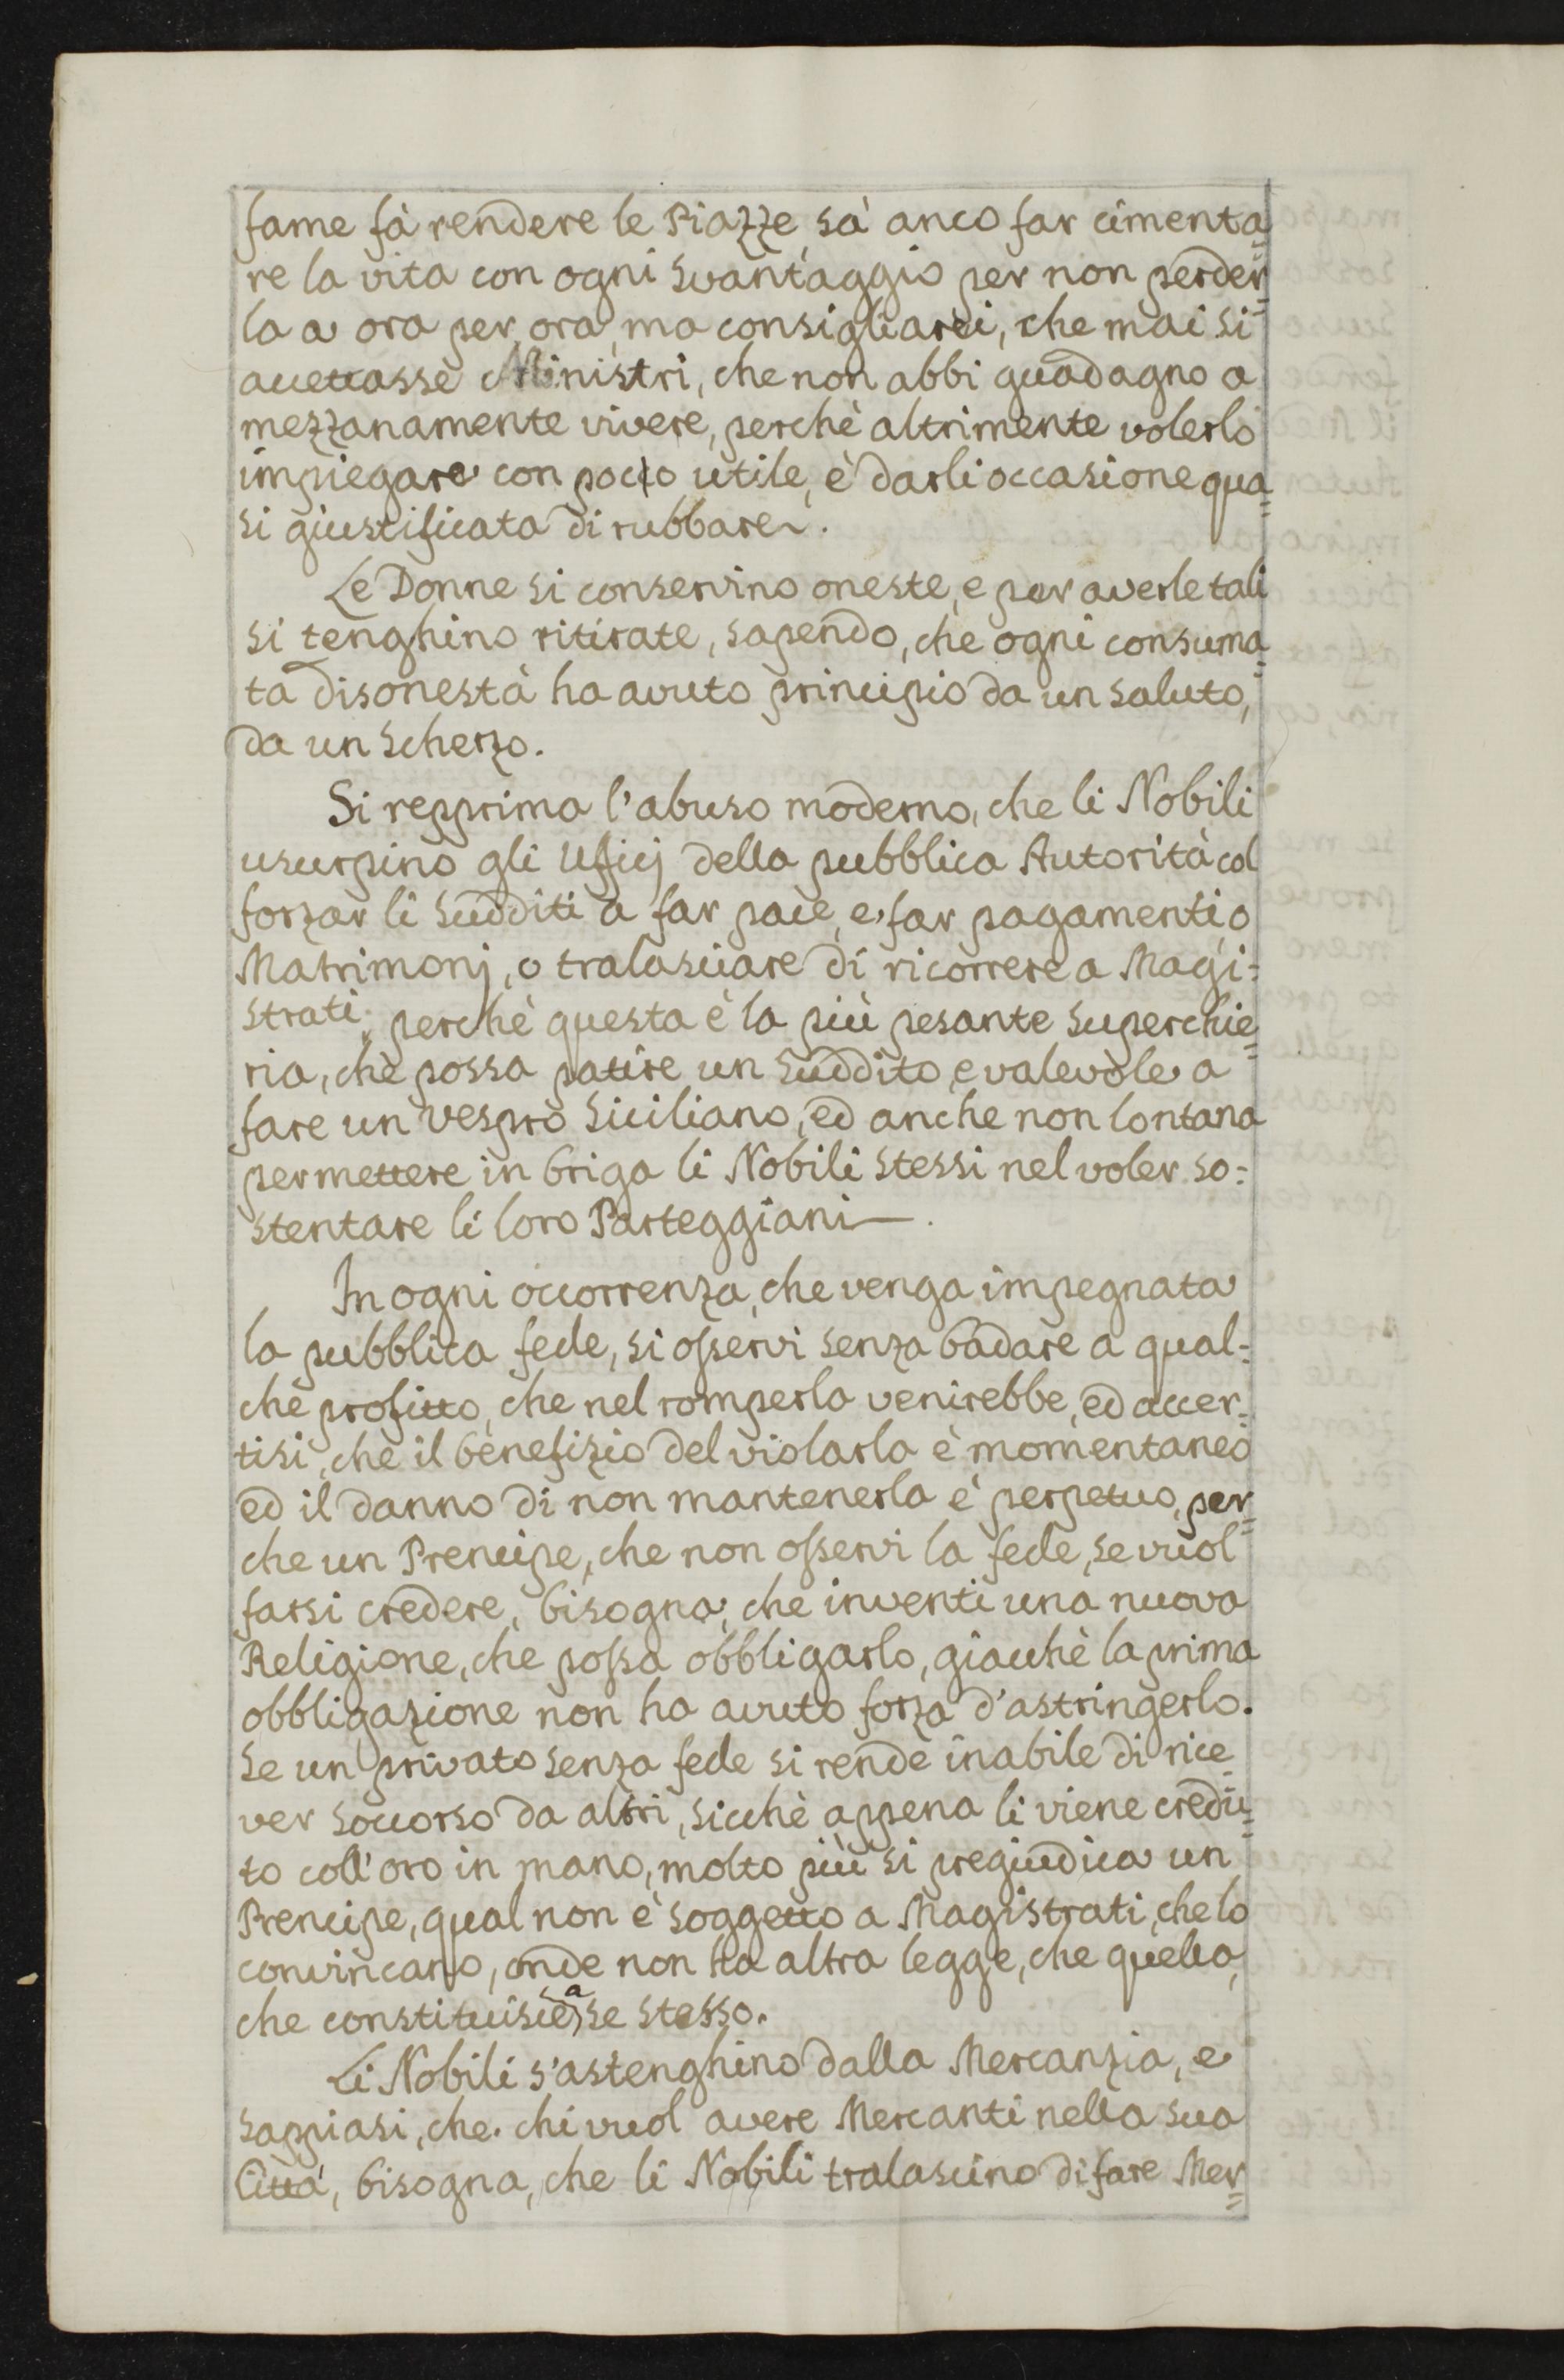 fame fà rendere le Piazze, sà anco far cimenta=
re la vita con ogni Svantaggio per non perder=
la a ora per ora, ma consigliarei, che mai si
accettasse Ministri, che non abbi guadagno a
mezzanamente vivere, perchè altrimente volerlo
impiegare con pocco utile, è darli occasione qua=
si giustificata di rubbare.
Le Donne si conservino oneste, e per averle tali
si tenghino ritirate, sapendo, che ogni consuma=
ta disonestà ha avuto principio da un saluto,
da un Scherzo.
Si repprima l'abuso moderno, che li Nobili
usurpino gli Uficj della pubblica Autorità col
forzar li Sudditi a far pace, e far pagamenti, o
Matrimonj, o tralasciare di ricorrere a Magi=
strati; perchè questa è la più pesante Superchie=
ria, che possa patire un Suddito, e valevole a
fare un Vespro Siciliano, ed anche non lontana
per mettere in briga li Nobili stessi nel voler so=
stentare li loro Parteggiani.
In ogni occorrenza, che venga impegnata
la pubblica fede, si osservi senza badare a qual=
che profitto, che nel romperla venirebbe, ed accer=
tisi, che il benefizio del violarla è momentaneo
ed il danno di non mantenerla è perpetuo, per=
che un Prencipe, che non osservi la fede, se vuol
farsi credere, bisogna, che inventi una nuova
Religione, che possa obbligarlo, giacchè la prima
obbligazione non ha avuto forza d'astringerlo.
Se un privato senza fede si rende inabile di rice=
ver soccorso da altri, sicchè appena li viene credu=
to coll'oro in mano, molto più si pregiudica un
Prencipe, qual non è soggetto a Magistrati, che lo
convincano, onde non ha altra legge, che quella,
che constituisce a se stesso.
Li Nobili s'astenghino dalla Mercanzia, e
sappiasi, che chi vuol avere Mercanti nella sua
Città, bisogna, che li Nobili tralascino di fare Mer=